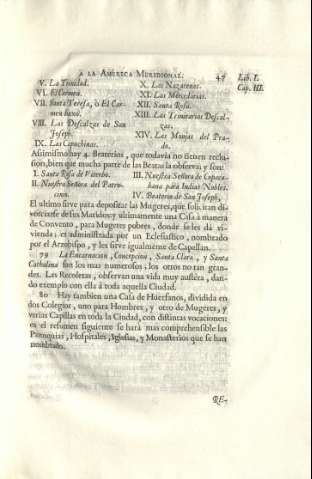 A LA AMÉRICA MERIDIONAL. 47 Lib. I.
Cap. III.
V. La Trinidad.
VI. El Carmen.
VII. Santa Teresa, ò El Car-
VIII. Las Descalzas de San
Joseph.
IX. Las Capuchinas.
X. Las Nazarenas.
XI. Las Mercedarias.
XII. Santa Rosa.
XIII. Las Trinitarias Descal-
zas.
XIV. Las Monjas del Pra-
do.
Assimismo hay 4. Beaterios, que todavia no tienen reclu-
sion, bien que mucha parte de las Beatas la observan, y son:
I. Santa Rosa de Viterbo.
II. Nuestra Señora del Patro-
cinio.
III. Nuestra Señora de Copaca-
bana para Indias Nobles.
IV. Beaterio de San Joseph,
El ultimo sirve para depositar las Mugeres, que solicitan di-
vorciarse de sus Maridos; y ultimamente una Casa à manera
de Convento, para Mugeres pobres, donde se les dà vi-
vienda: es administrada por un Eclesiastico, nombrado
por el Arzobispo, y les sirve igualmente de Capellan.
79 La Encarnacion, Concepcion, Santa Clara, y Santa
Cathalina son los mas numerosos, los otros no tan gran-
des. Las Recoletas, observan una vida muy austèra, dan-
do exemplo con ella à toda aquella Ciudad.
80 Hay tambien una Casa de Huerfanos, dividida en
dos Colegios, uno para Hombres, y otro de Mugeres, y
varias Capillas en toda la Ciudad, con distintas vocaciones;
en el resumen siguiente se harà mas comprehensible las
Parroquias, Hospitales, Iglesias, y Monasterios que se han
nombrado.
RE-